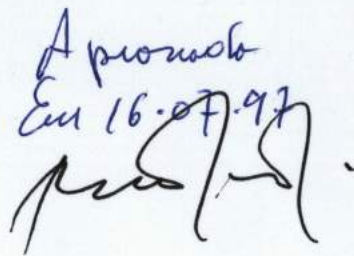 Aprovado
Em 16.07.97